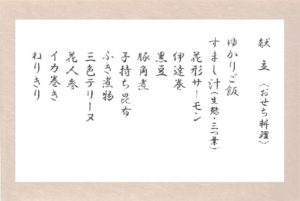 献立(おせち料理)
ゆかりご飯
すまし汁(生麩・三つ葉)
花形サーモン
伊達巻
黒豆
豚角煮
子持ち昆布
ふき煮物
三色テリーヌ
花人参
イカ巻き
ねりきり